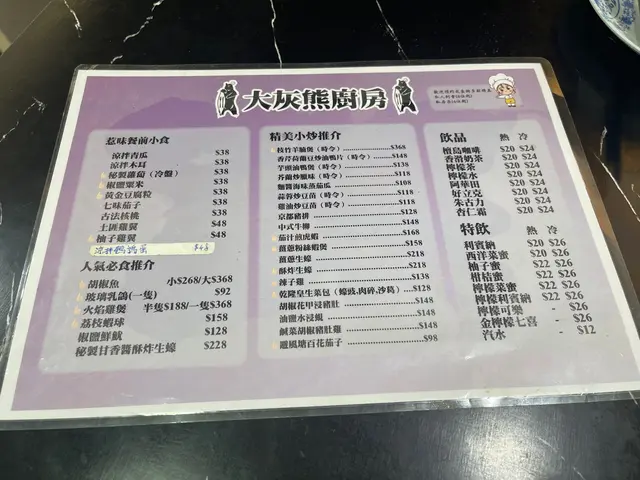 大灰熊廚房
惹味餐前小食
涼拌青瓜 $38
涼拌木耳 $38
秘製蘿蔔（冷盤） $38
椒鹽粟米 $38
黃金豆腐粒 $38
七味茄子 $38
古法核桃 $38
土匪雞翼 $48
柚子雞翼 $48
人氣必食推介
胡椒魚 小$268/大$368
玻璃乳鴿(一隻) $92
火焰雞煲 半隻$188/一隻$368
荔枝蝦球 $158
椒鹽鮮魷 $128
秘製甘香醬酥炸生蠔 $228
精美小炒推介
枝竹羊腩煲（時令） $368
香芹荷蘭豆炒油鴨片（時令） $148
芋頭油鴨煲（時令） $138
芥蘭炒臘味（時令） $118
麵醬海味蒸茄瓜 $108
蒜蓉炒豆苗（時令） $118
雞油炒豆苗（時令） $118
京都豬排 $128
中式牛柳 $148
茄汁煎虎蝦 $168
薑蔥粉絲蝦煲 $158
薑蔥生蠔 $218
酥炸生蠔 $218
辣子雞 $138
乾隆皇生菜包（蠔豉,肉碎,沙葛） $128
胡椒花甲浸豬肚 $148
油鹽水浸蜆 $148
鹹菜胡椒豬肚雞 $148
避風塘百花茄子 $98
飲品 熱 冷
檀島咖啡 $20 $24
香滑奶茶 $20 $24
檸檬茶 $20 $24
檸檬水 $20 $24
阿華田 $20 $24
好立克 $20 $24
朱古力 $20 $24
杏仁霜 $20 $24
特飲 熱 冷
利賓納 $20 $26
西洋菜蜜 $20 $26
柚子蜜 $22 $26
柑桔蜜 $22 $26
檸檬菜蜜 $22 $26
檸檬利賓納 $22 $26
檸檬可樂 - $26
金檸檬七喜 - $26
汽水 - $12